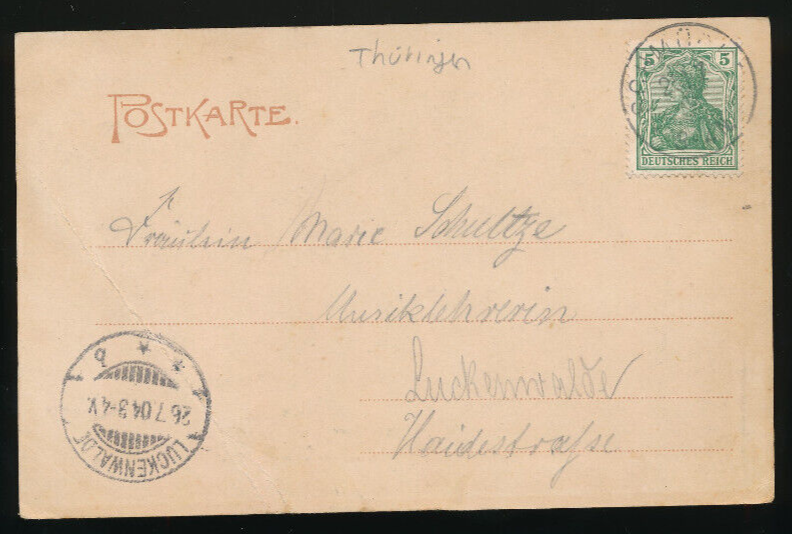 Thüringen
POSTKARTE.
5 5
DEUTSCHES REICH
Fräulein Marie Schultze
Musiklehrerin
Luckenwalde
Haidestraße
LUCKENWALDE
26.7.04.3-4V.